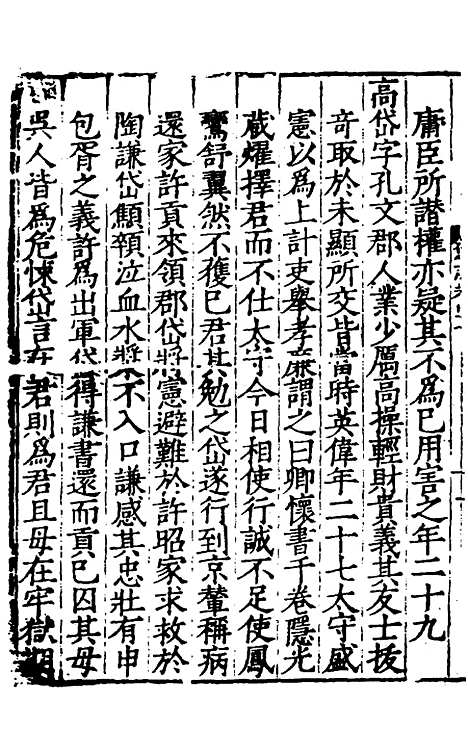 庸臣所譖權亦疑其不爲己用害之年二十九
高岱字孔文郡人業少厲高操輕財貴義其友士拔
竒取於未顯所交皆當時英偉年二十七太守盛
憲以爲上計吏舉孝廉謂之曰卿懷書千卷隱光
藏燿擇君而不仕太守今日相使行誠不足使鳳
鸞舒翼然不獲已君其勉之岱遂行到京輦稱病
還家許貢來領郡岱將憲避難於許昭家求救於
陶謙岱顦顇泣血水漿不入口謙感其忠壯有申
包胥之義許爲出軍岱得謙書還而貢已囚其母
吳人皆爲危悚岱言在君則爲君且母在牢獄期